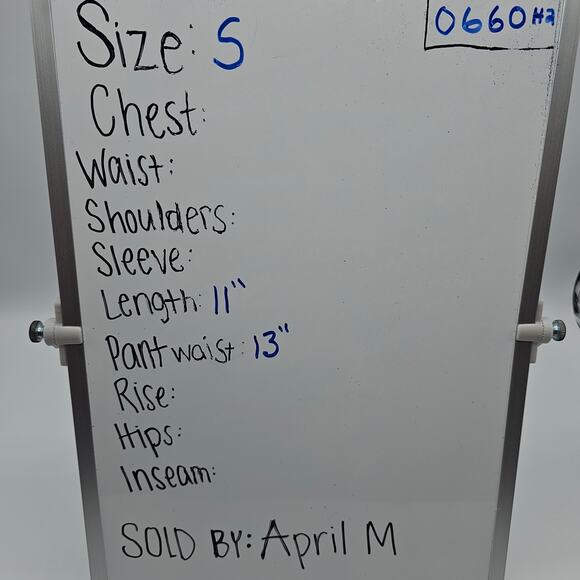 Size: S
0660HZ
Chest:
Waist:
Shoulders:
Sleeve:
Length: 11"
Pant waist: 13"
Rise:
Hips:
Inseam:
SOLD BY: April M